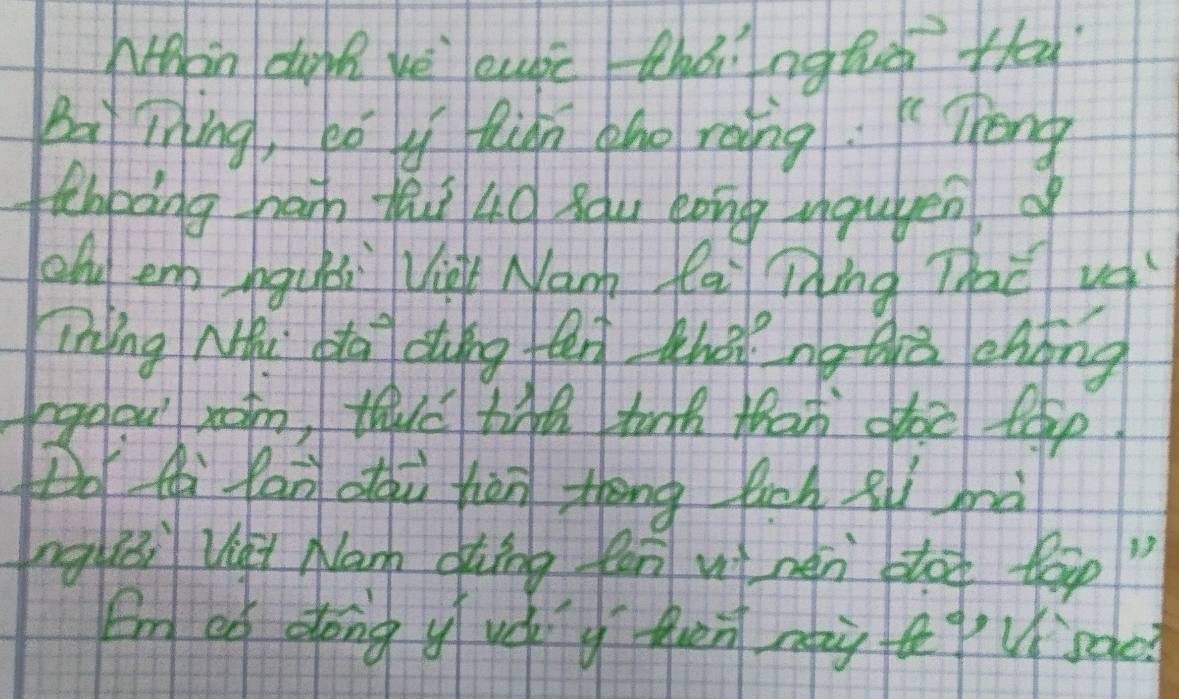 Nhận định về cuộc khởi nghĩa Hai
Bà Trưng, có ý kiến cho rằng: "Trong
khoảng năm thứ 40 sau công nguyên, 2
chị em người Việt Nam là Trưng Trắc và
Trưng Nhị đã đứng lên khởi nghĩa chống
ngoại xâm, thức tỉnh tinh thần độc lập.
Đó là lần đầu tiên trong lịch sử mà
người Việt Nam đứng lên vì nền độc lập"
Em có đồng ý với ý kiến này k? Vì sao?